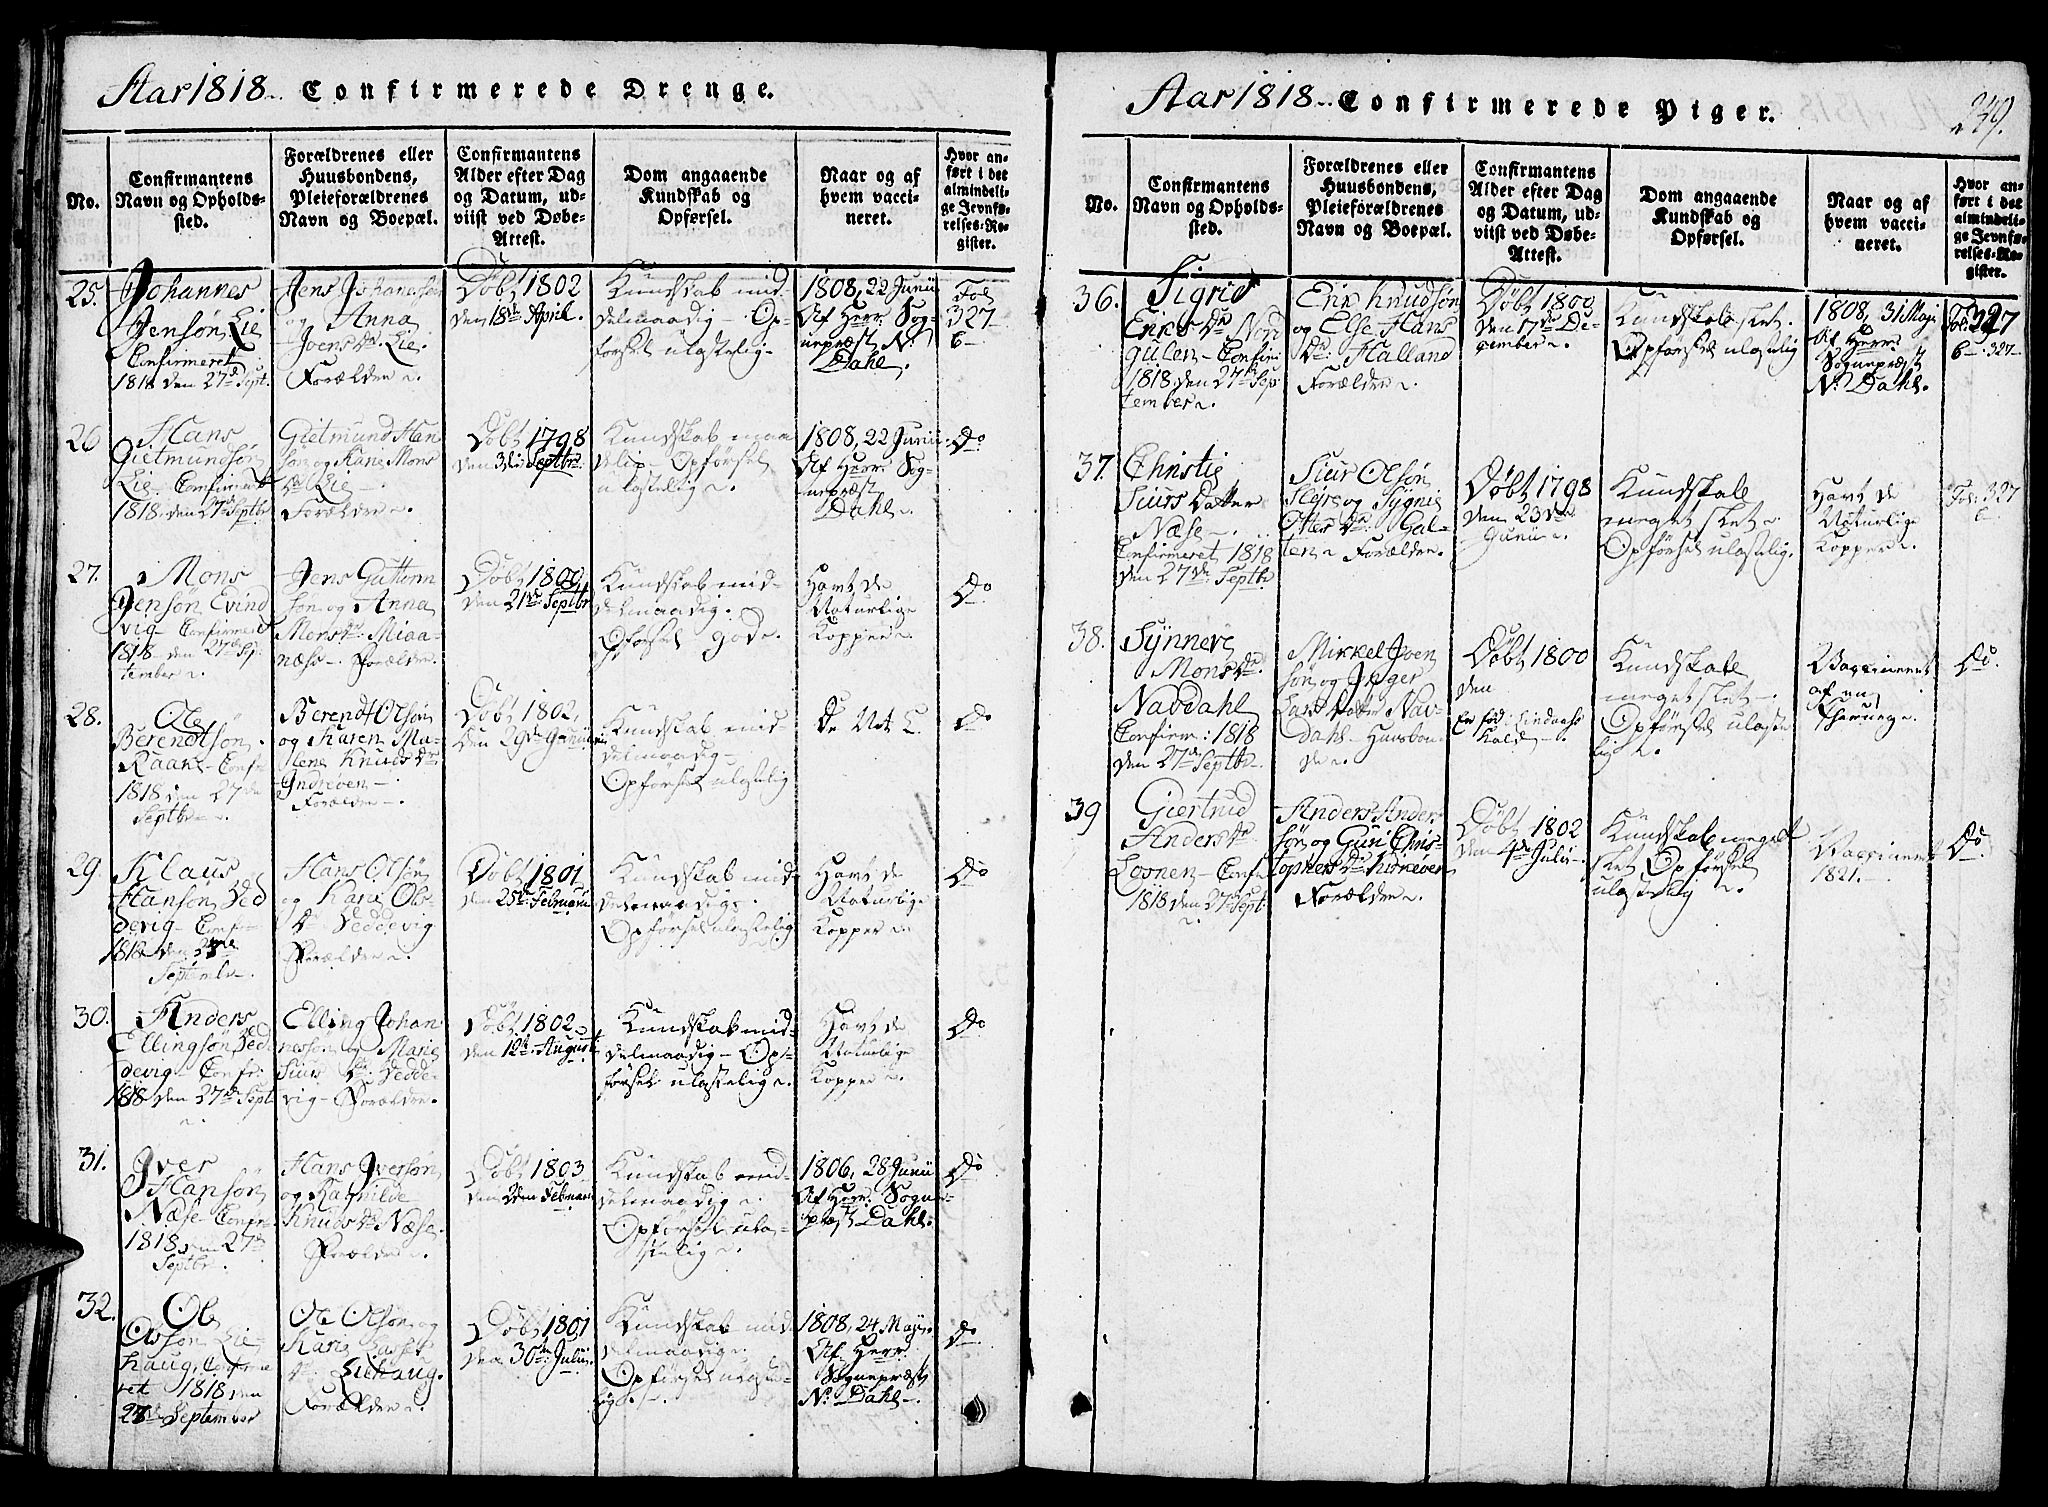 Aar 1818. Confirmerede Drenge.
No.
Confirmantens
Navn og Opholds-
sted.
Forældrenes eller
Huusbondens,
Pleieforældrenes
Navn og Boepæl.
Confirmantens
Alder efter Dag
og Datum, ud-
viist ved Døbe-
Attest.
Dom angaaende
Kundskab og
Opførsel.
Naar og af
hvem vacci-
neret.
Hvor an-
ført i det
almindeli-
ge Jevnfø-
relses-Re-
gister.
25.
Johannes
Jensøn Lie
Confirmeret
1818 den 27de Sept.
Jens Johannessøn
og Anna
Joens Dr. Lie.
Forældre.
Døbt 1802
den 18de April.
Kundskab mid-
delmaadig. Op-
førsel ulastelig.
1808, 22 Junii
Af Herr. Sog-
nepræst N:
Dahl.
Fol
327
6
26
Hans
Gietmundsøn
Lie. Confirmeret
1818, den 27de Septbr
Gietmund Han
søn og Karie Mons
Dr. Lie.
Forældre.
Døbt 1798
den 3die Septbr.
Kundskab maa
delig. Opførsel
ulastelig.
1808, 22 Junii
Af Herr. Sog-
nepræst
Dahl.
Do
27.
Mons
Jensøn Evind
vig. Confirmeret
1818 den 27de Sep
tember.
Jens Guttorm
søn og Anna
Mons Dr. Miaa-
næss. Forældre.
Døbt 1800
den 21de Septbr
Kundskab mid
delmaadig.
Opførsel god.
Havt de
Naturlige
Kopper.
Do
28.
Ole
Berendtsøn
Raane. Confr
1818 den 27de
Septbr.
Berendt Olsøn
og Karen Ma-
lene Knuds Dr.
Indreøen.
Forældre.
Døbt 1802,
den 29de
Kundskab mid
delmaadig.
Opførsel ulastelig
Do
29.
Klaus
Hansøn Ved
devig. Confir-
1818 den 27de
Septembr.
Hans Olsøn
og Karie Ols-
Dr. Veddevig
Forældre.
Døbt 1801
den 25de Februarii
Kundskab mid
delmaadig.
Opførsel ulastelig
Havt de
Naturlige
Kopper
Do
30.
Anders
Ellingsøn Ved
devig. Confir.
1818 den 27de Sept
Elling Johan
nessøn og Marie
Siurs Dr. Vedde-
vig. Forældre.
Døbt 1802.
den 12te Augusti
Kundskab mid-
delmaadig. Op-
førsel ulastelig.
Havt de
Naturlige
Kopper.
Do
31.
Iver
Hansøn
Næse. Confir-
1818 den 27de
Septbr.
Hans Iversøn
og Ragnilde
Knuds Dr. Næse.
Forældre.
Døbt 1803
den 2den Februarii
Kundskab mid-
delmaadig.
Opførsel ula-
stelig.
1806, 28 Junii
Af Herr. Sogne-
præst Dahl.
Do
32.
Ole
Olsøn Lie-
haug, Confirme
ret 1818 den
27de September
Ole Olsøn og
Karie Lasses
Dr. Liehaug.
Forældre.
Døbt 1801
den 30te Julii.
Kundskab mid
delmaadig.
Opførsel ulaste-
lig.
1808, 24 Maji.
Af Herr.
Sognepræst
N: Dahl.
Do
Aar 1818. Confirmerede Piger.
249.
No.
Confirmantens
Navn og Opholds-
sted.
Forældrenes eller
Huusbondens,
Pleieforældrenes
Navn og Boepæl.
Confirmantens
Alder efter Dag
og Datum, ud-
viist ved Døbe-
Attest.
Dom angaaende
Kundskab og
Opførsel.
Naar og af
hvem vacci-
neret.
Hvor an-
ført i det
almindeli-
ge Jevnfø-
relses-Re-
gister.
36.
Sigrid
Eriks Dr. Nord
gulen. Confirm
1818, den 27de Sep
tember.
Erik Knudsøn
og Else Hans
Dr. Halland
Forældre.
Døbt 1800
den 17de De-
cember.
Kundskab slet.
Opførsel ulastelig
1808, 31 Maji
Af Herr.
Sognepræst
N: Dahl.
Fol: 327
6. 327
37.
Christie
Siurs Datter
Næse.
Confirmeret 1818
den 27de Septbr
Siur Olsøn
og Sygnie
Otters Dr. Gal-
ten. Forældre.
Døbt 1798
den 23de
Junii.
Kundskab
meget slet.
Opførsel ulastelig.
Havt de
Naturlige
Kopper.
Fol: 327
6
38.
Synneve
Mons Dr.
Navdahl
Confirm: 1818
den 27de Septbr.
Mikkel Joen
søn og Inger
Lars Datter Nav-
dahl. Huusbon
de.
Døbt 1800
den
Kundskab
meget slet.
Opførsel ulaste
lig.
Vaccineret
af en
Do.
39
Giertrud
Anders Dr.
Losnen. Confr
1818 den 27 Sept.
Anders Anders
søn og Guri Chris-
tophers Dr. Indreøen
Forældre.
Døbt 1802
den 4de Julii.
Kundskab meget
slet. Opførsel
ulastelig.
Vaccineret
1821.
Do.